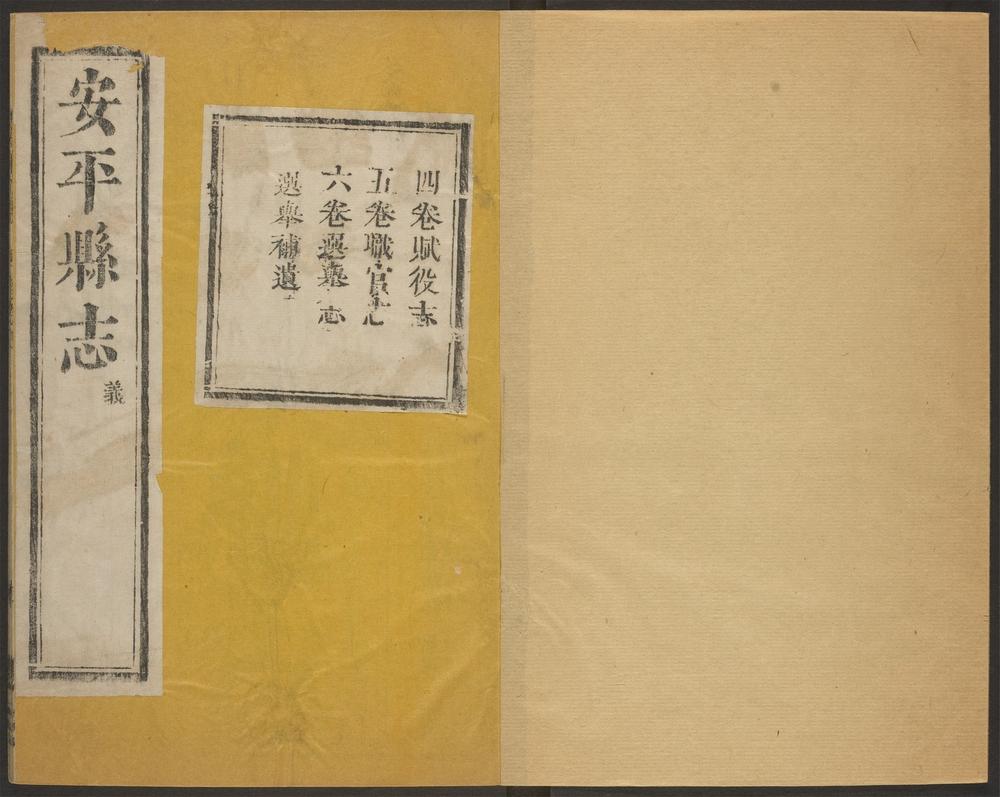 四卷賦役志
五卷職官志
六卷選舉志
選舉補遺
安平縣志
義